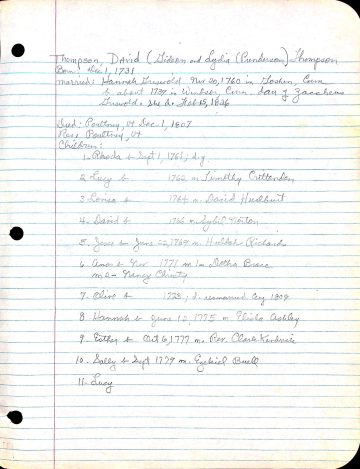 Thompson, David (Gideon and Lydia (Punderson) Thompson
Born: Dec 1, 1731
married: Hannah Griswold Nov 20, 1760 in Goshen, Conn
b about 1737 in Windsor, Conn. dau of Zaccheus
Griswold. She d. Feb 15, 1826
Died: Poultney, Vt Dec 1, 1807
Res: Poultney, Vt
Children:
1. Rhoda b Sept 1, 1761; d.y.
2. Lucy b 1762 m. Timothy Crittenden
3. Lorisa b 1764 m. David Hurlburt
4. David b 1766 m. Sybil
5. Jesse b June 22, 1769 m. Huldah Richards
6. Amos b Nov 1771 m 1- Brace
m 2- Nancy Christy
7. Olive b 1773; d. unmarried Aug 1804
8. Hannah b June 12, 1775 m. Elisha Ashley
9. Esther b Oct 6, 1777 m. Rev. Clark
10. Sally b Sept 1779 m. Ezekiel Buell
11. Lucy